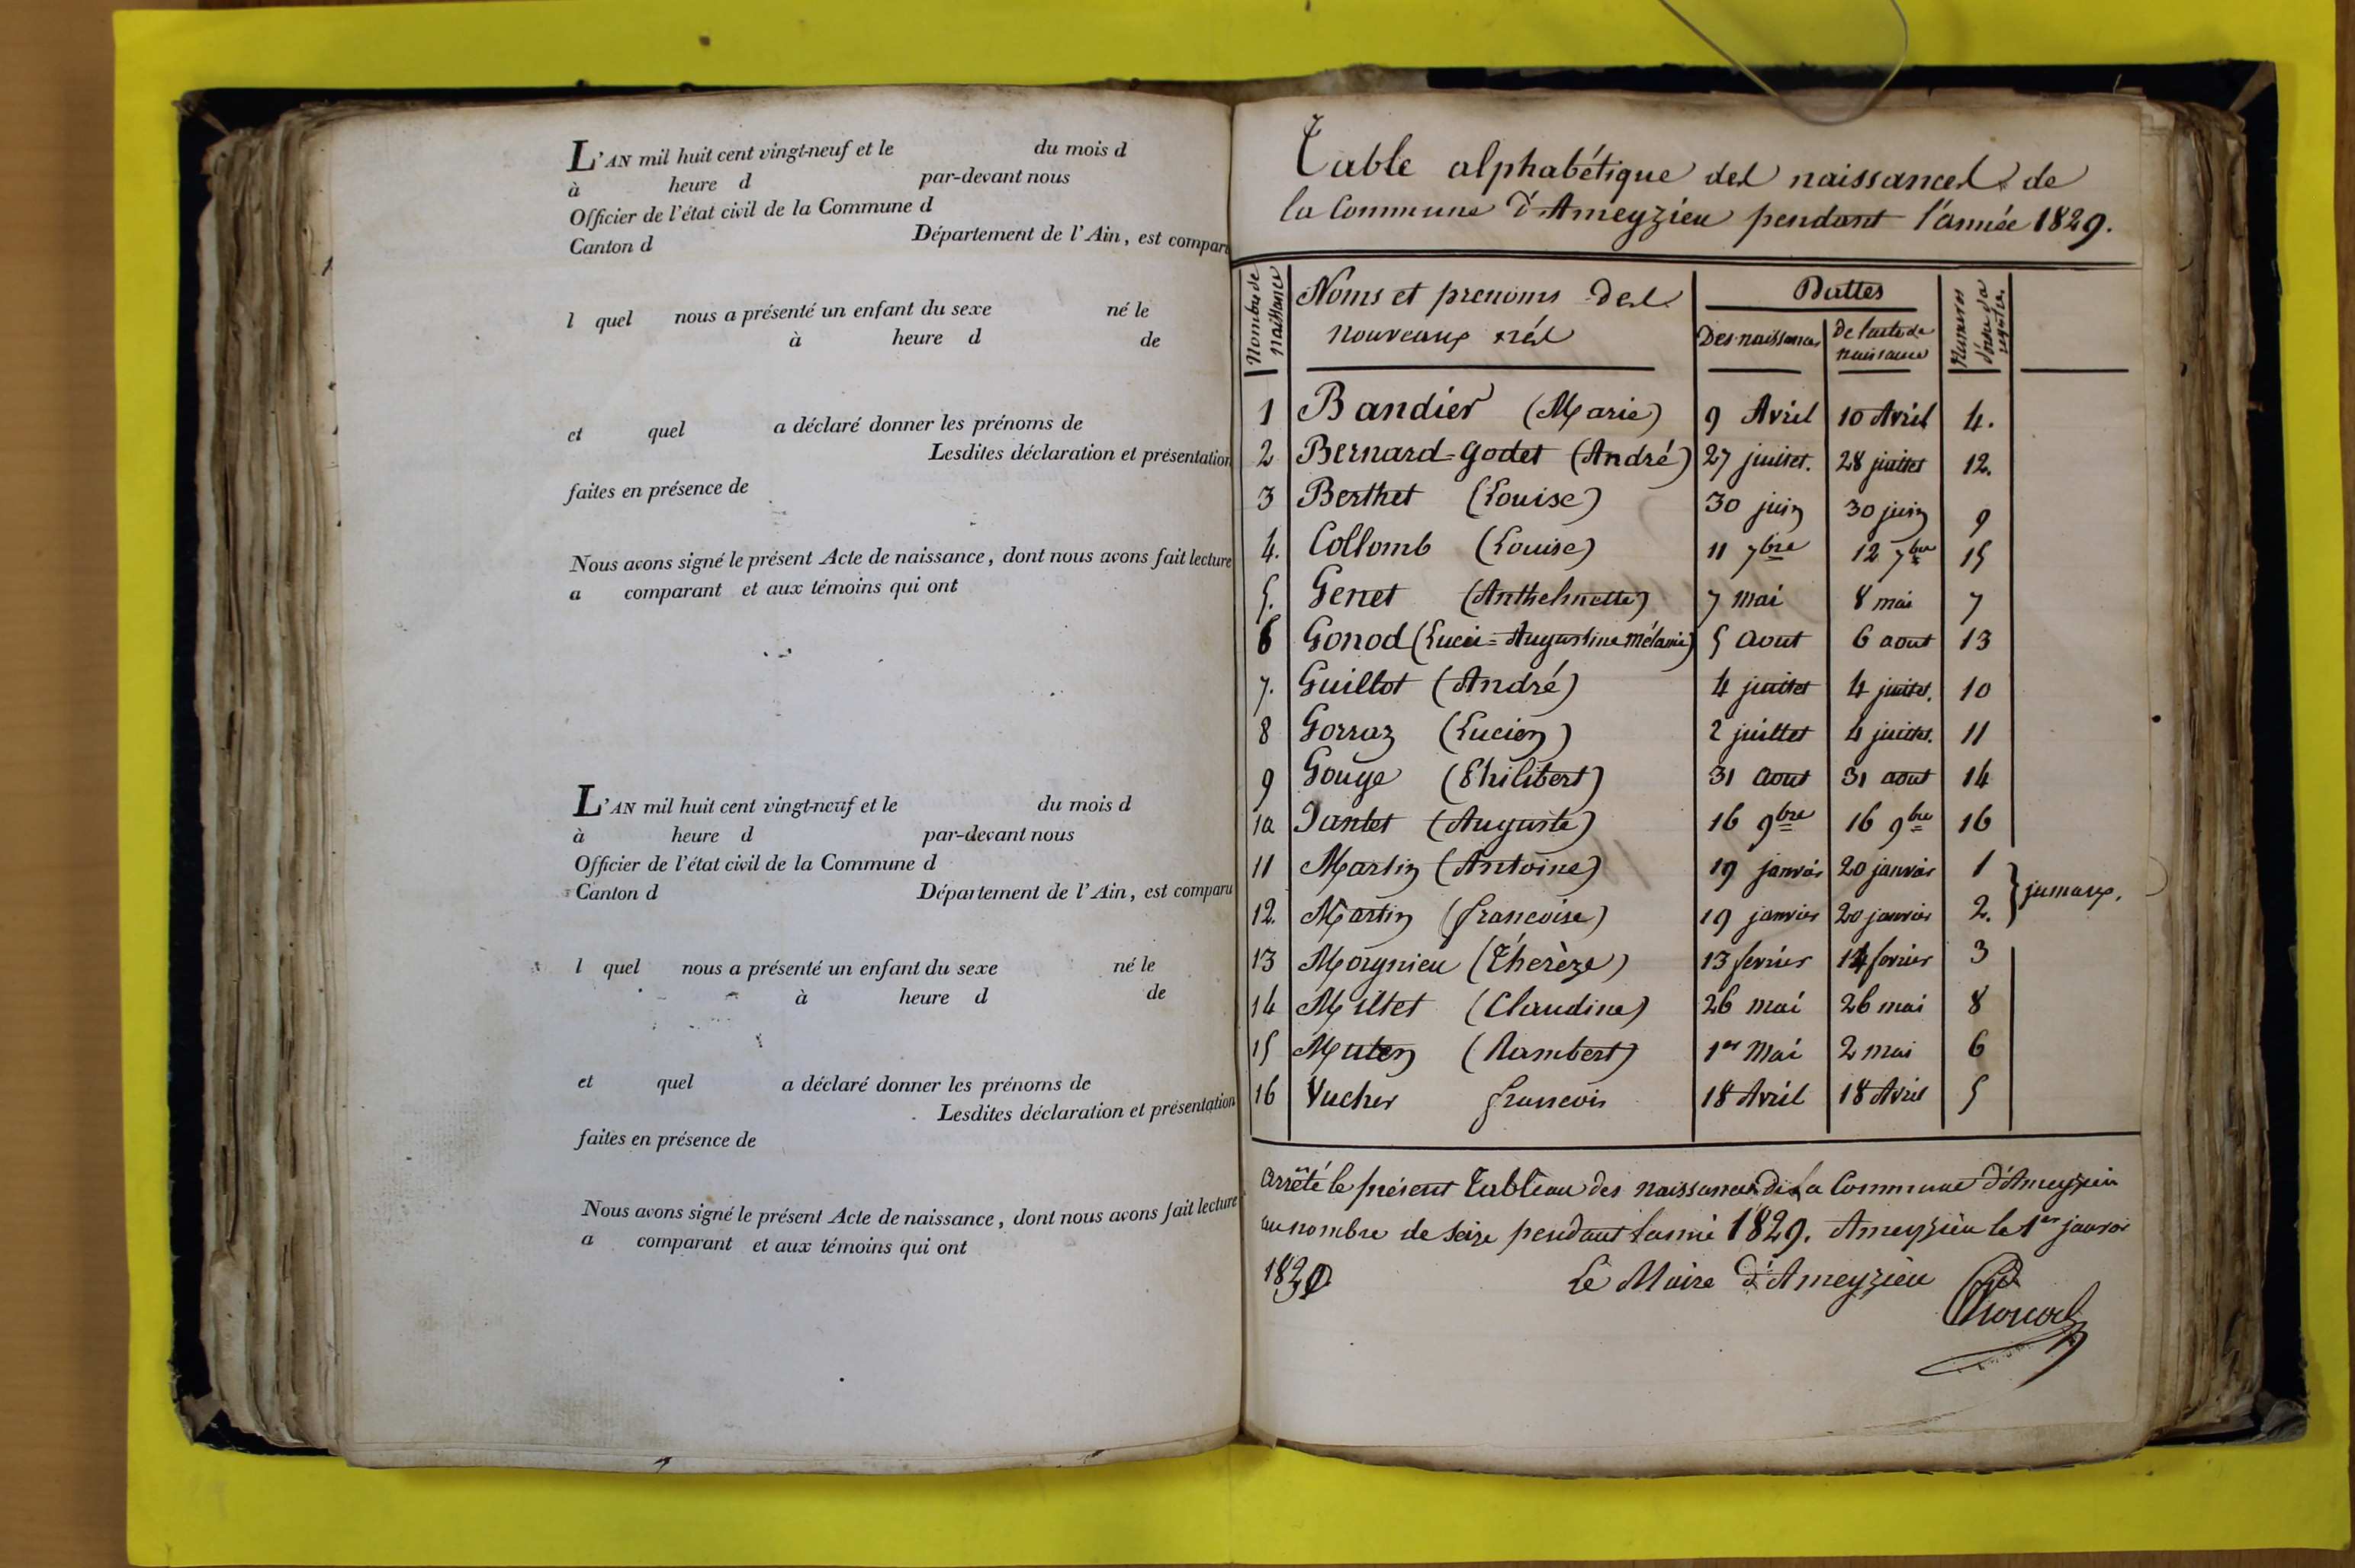 L'AN mil huit cent vingt-neuf et le du mois d
à heure d par-devant nous
Officier de l'état civil de la Commune d
Canton d Département de l'Ain, est comparu
l quel nous a présenté un enfant du sexe né le
à heure d de
et quel a déclaré donner les prénoms de
Lesdites déclaration et présentation
faites en présence de
Nous avons signé le présent Acte de naissance, dont nous avons fait lecture
a comparant et aux témoins qui ont
L'AN mil huit cent vingt-neuf et le du mois d
à heure d par-devant nous
Officier de l'état civil de la Commune d
Canton d Département de l'Ain, est comparu
l quel nous a présenté un enfant du sexe né le
à heure d de
et quel a déclaré donner les prénoms de
Lesdites déclaration et présentation
faites en présence de
Nous avons signé le présent Acte de naissance, dont nous avons fait lecture
a comparant et aux témoins qui ont
Table alphabétique des naissances de
la Commune d'Ameyzieu pendant l'année 1829.
Nombre de naissances
Noms et prenoms des
nouveaux nés
Dattes
Des naissances
de l'acte de
naissance
Numeros d'ordre du registre
1 Bandier (Marie) 9 Avril 10 Avril 4.
2 Bernard=Godet (André) 27 juillet. 28 juillet 12.
3 Berthet (Louise) 30 juin 30 juin 9
4. Collomb (Louise) 11 7bre 12 7bre 15
5. Genet (Anthelmette) 7 mai 8 mai 7
6 Gonod (Lucie=Augustine Mélanie) 5 Aout 6 aout 13
7. Guillot (André) 4 juillet 4 juillet. 10
8 Gorraz (Lucien) 2 juillet 4 juillet. 11
9 Gouge (Philibert) 31 Aout 31 aout 14
10 Jantet (Auguste) 16 9bre 16 9bre 16
11 Martin (Antoine) 19 janvier 20 janvier 1
12. Martin (francoise) 19 janvier 20 janvier 2. } jumaux.
13 Morgnieu (Thérèze) 13 fevrier 14 fevrier 3
14 Millet (Claudine) 26 mai 26 mai 8
15 Mutin (Rambert) 1er Mai 2 mai 6
16 Vucher francois 18 Avril 18 Avril 5
Arrêté le présent tableau des naissances de la Commune d'Ameyzieu
au nombre de seize pendant l'anné 1829. Ameyzieu le 1er janvier
1830 Le Maire d'Ameyzieu